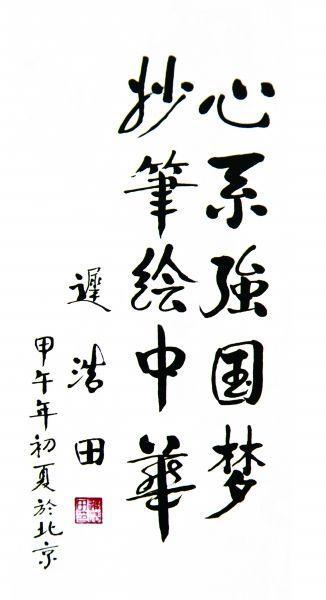 心系強国梦
妙筆绘中華
遲浩田
甲午年初夏於北京